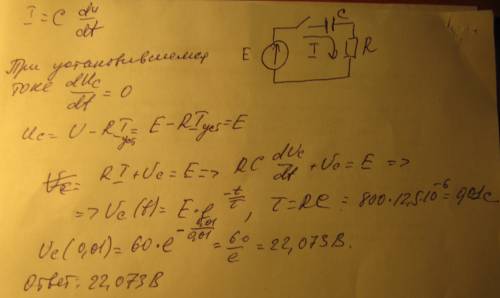 I = C du/dt
C
E
I
R
При установившемся
токе dUc/dt = 0
Uc = U - R Iуст = E - R Iуст = E
RI + Uc = E => RC dUc/dt + Uc = E =>
=> Uc(t) = E · e^(-t/τ), τ = RC = 800 · 12,5 · 10^-6 = 0,01c
Uc(0,01) = 60 · e^(-0,01/0,01) = 60/e = 22,073 В.
Ответ: 22,073 В